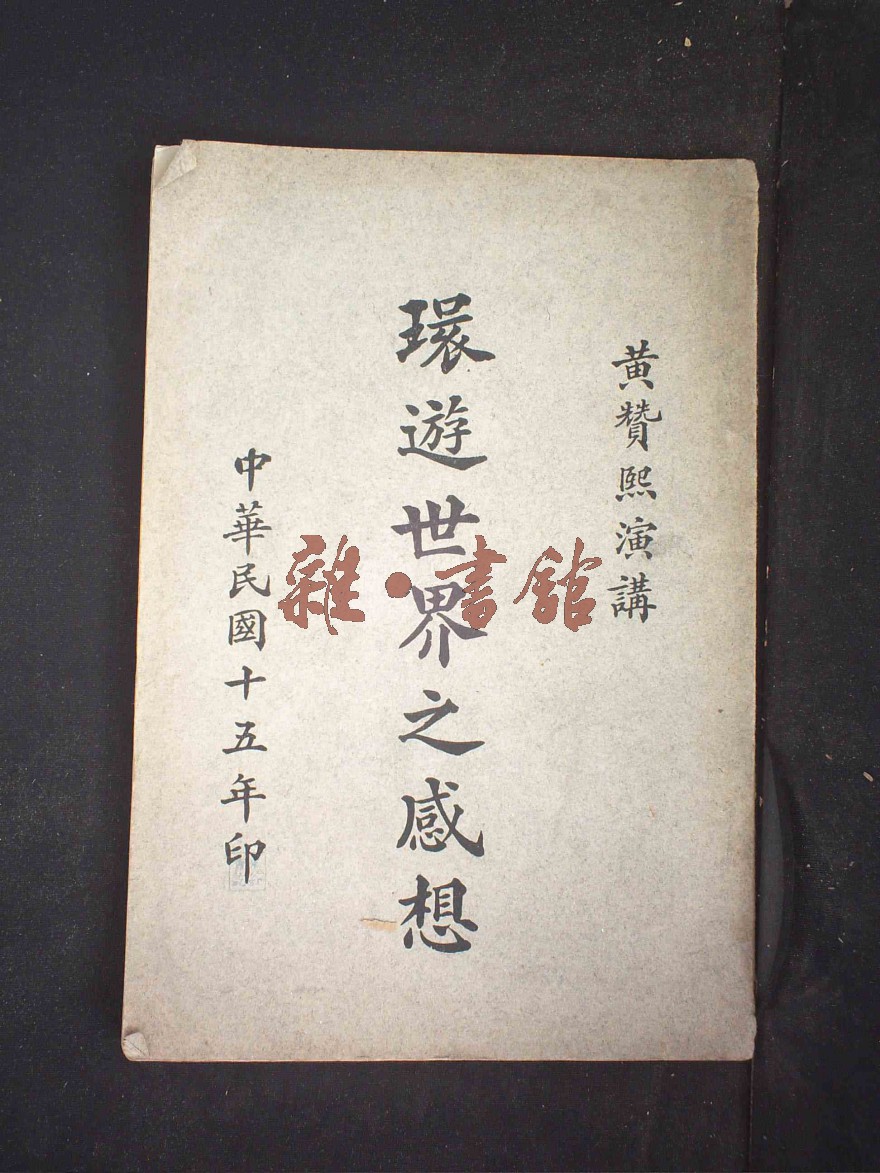 黃贊熙演講
環遊世界之感想
中華民國十五年印
雜·書館